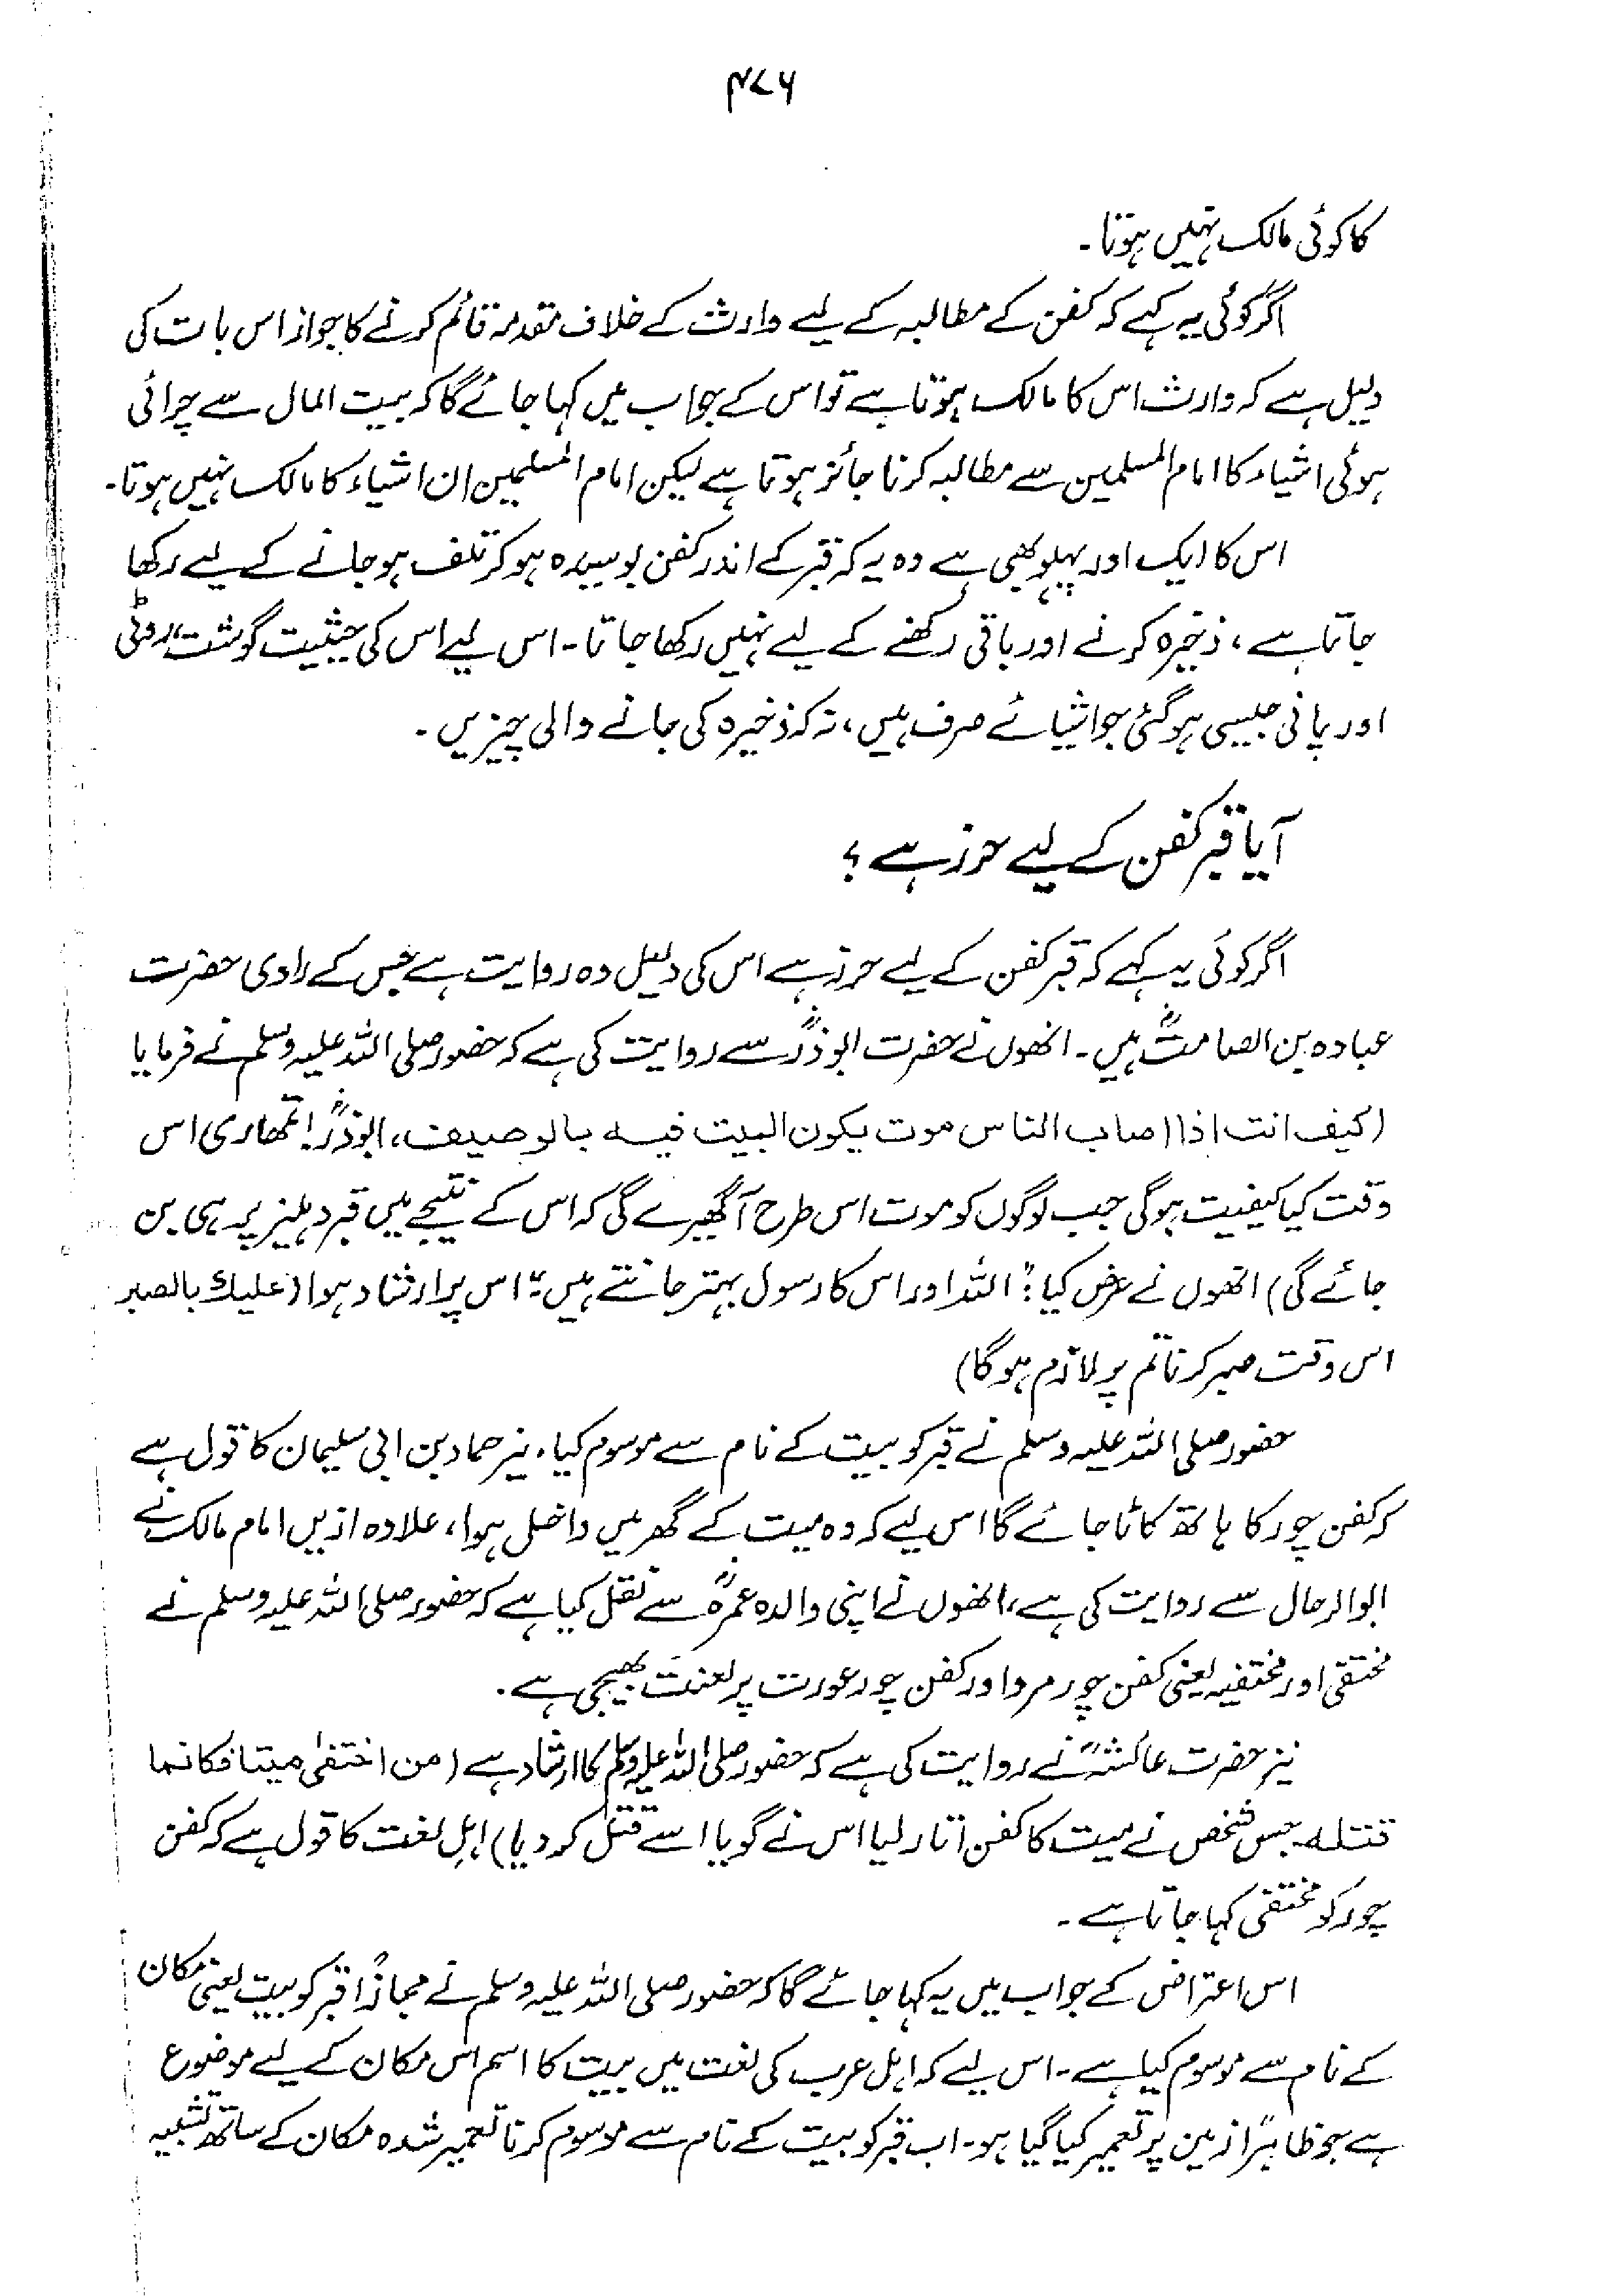 ۴۷۶
کا کوئی مالک نہیں ہوتا۔
اگر کوئی یہ کہے کہ کفن کے مطالبہ کے لیے وارث کے خلاف مقدمہ قائم کرنے کا جواز اس بات کی
دلیل ہے کہ وارث اس کا مالک ہوتا ہے تو اس کے جواب میں کہا جائے گا کہ بیت المال سے چرائی
ہوئی اشیاء کا امام المسلمین سے مطالبہ کرنا جائز ہوتا ہے لیکن امام المسلمین ان اشیاء کا مالک نہیں ہوتا۔
اس کا ایک اور پہلو بھی ہے وہ یہ کہ قبر کے اندر کفن بوسیدہ ہو کر تلف ہو جانے کے لیے رکھا
جاتا ہے، ذخیرہ کرنے اور باقی رکھنے کے لیے نہیں رکھا جاتا۔ اس لیے اس کی حیثیت گوشت، روٹی
اور پانی جیسی ہو گئی جو اشیائے صرف ہیں، نہ کہ ذخیرہ کی جانے والی چیزیں۔
آیا قبر کفن کے لیے حرز ہے؟
اگر کوئی یہ کہے کہ قبر کفن کے لیے حرز ہے اس کی دلیل وہ روایت ہے جس کے راوی حضرت
عبادہ بن الصامتؓ ہیں۔ انھوں نے حضرت ابوذرؓ سے روایت کی ہے کہ حضور صلی اللہ علیہ وسلم نے فرمایا
(کیف انت اذا اصاب الناس موت یکون البیت فیہ بالوصیف، ابوذرؓ! تمھاری اس
وقت کیا کیفیت ہوگی جب لوگوں کو موت اس طرح آگھیرے گی کہ اس کے نتیجے میں قبر دہلیز پر ہی بن
جائے گی) انھوں نے عرض کیا: "اللہ اور اس کا رسول بہتر جانتے ہیں"؛ اس پر ارشاد ہوا (علیک بالصبر
اس وقت صبر کرنا تم پر لازم ہوگا)
حضور صلی اللہ علیہ وسلم نے قبر کو بیت کے نام سے موسوم کیا۔ نیز حماد بن ابی سلیمان کا قول ہے
کہ کفن چور کا ہاتھ کاٹا جائے گا اس لیے کہ وہ میت کے گھر میں داخل ہوا، علاوہ ازیں امام مالک نے
ابو الرحال سے روایت کی ہے، انھوں نے اپنی والدہ عمرہؓ سے نقل کیا ہے کہ حضور صلی اللہ علیہ وسلم نے
مختفی اور مختفیہ یعنی کفن چور مرد اور کفن چور عورت پر لعنت بھیجی ہے۔
نیز حضرت عائشہؓ نے روایت کی ہے کہ حضور صلی اللہ علیہ وسلم کا ارشاد ہے (من اختفیٰ میتا فکانما
قتلہ۔ جس شخص نے میت کا کفن اتار لیا اس نے گویا اسے قتل کر دیا) اہل لغت کا قول ہے کہ کفن
چور کو مختفی کہا جاتا ہے۔
اس اعتراض کے جواب میں یہ کہا جائے گا کہ حضور صلی اللہ علیہ وسلم نے مجازاً قبر کو بیت یعنی مکان
کے نام سے موسوم کیا ہے۔ اس لیے کہ اہل عرب کی لغت میں بیت کا اسم اس مکان کے لیے موضوع
ہے جو ظاہراً زمین پر تعمیر کیا گیا ہو۔ اب قبر کو بیت کے نام سے موسوم کرنا تعمیر شدہ مکان کے ساتھ تشبیہ